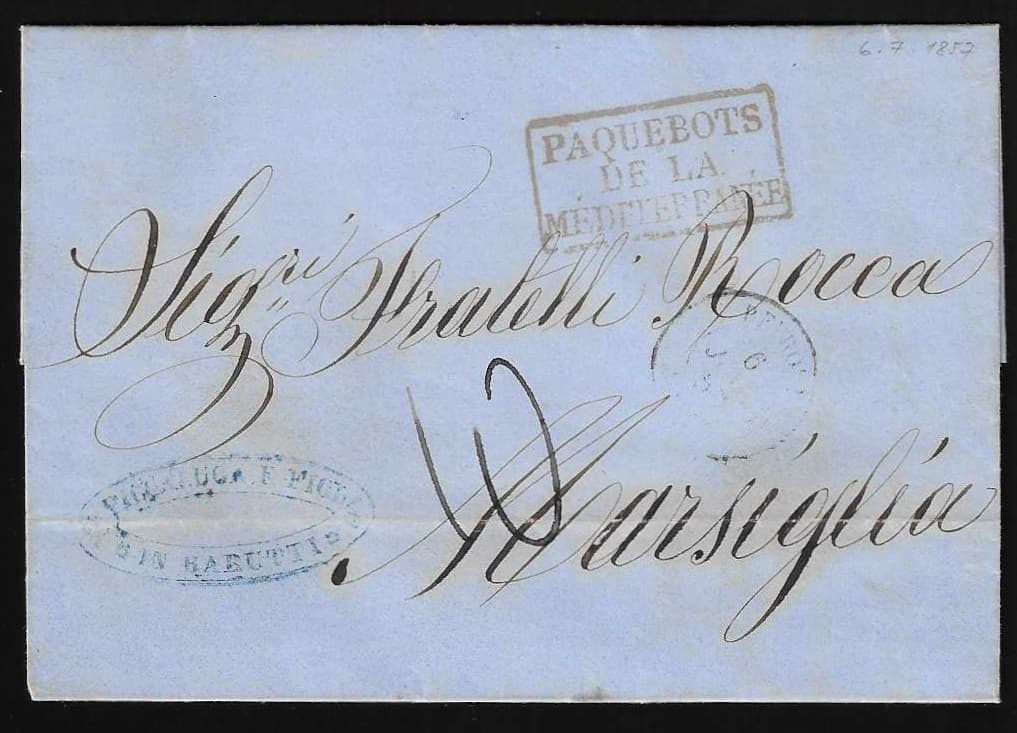 6.7.1857
PAQUEBOTS
DE LA
MÉDITERRANÉE
Sigri Fratelli Rocca
6
10
Marsiglia
E FIGLI
IN BARUTTI